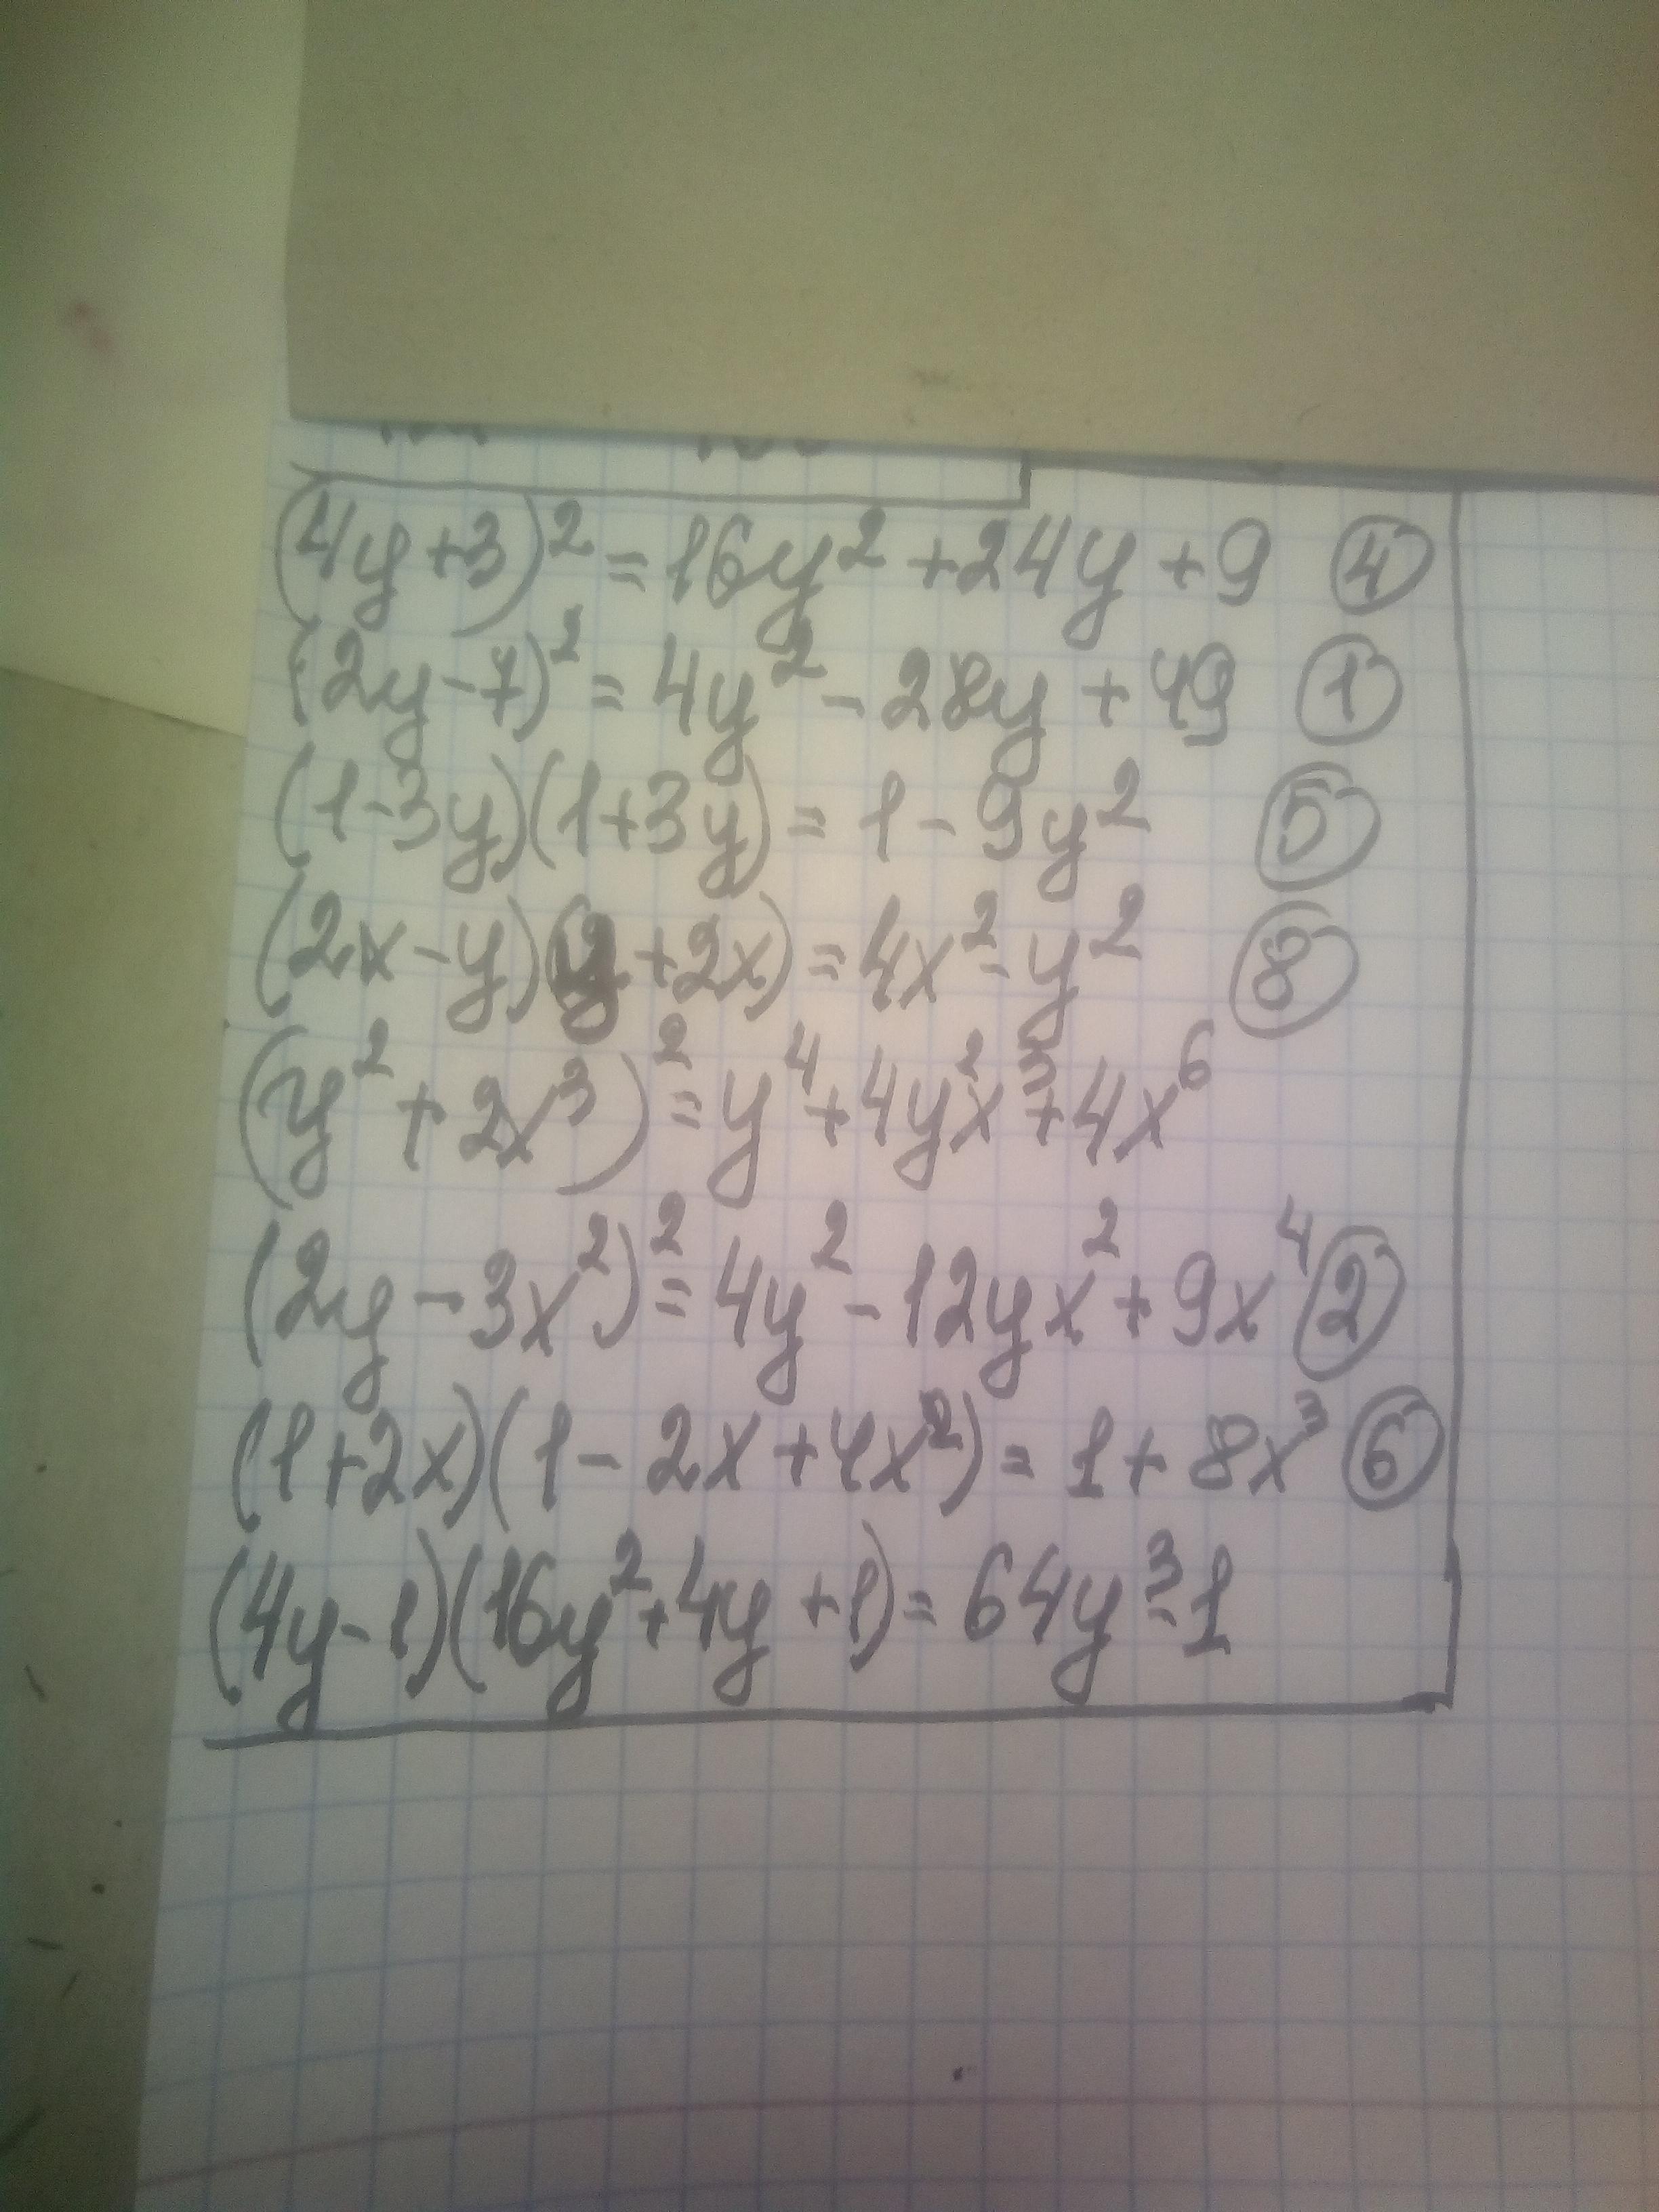 (4y+3)² = 16y² + 24y + 9 ④
(2y-7)² = 4y² - 28y + 49 ①
(1-3y)(1+3y) = 1 - 9y² ⑤
(2x-y)(y+2x) = 4x² - y² ⑧
(y² + 2x³)² = y⁴ + 4y²x³ + 4x⁶
(2y - 3x²)² = 4y² - 12yx² + 9x⁴ ②
(1+2x)(1 - 2x + 4x²) = 1 + 8x³ ⑥
(4y-1)(16y² + 4y + 1) = 64y³ - 1